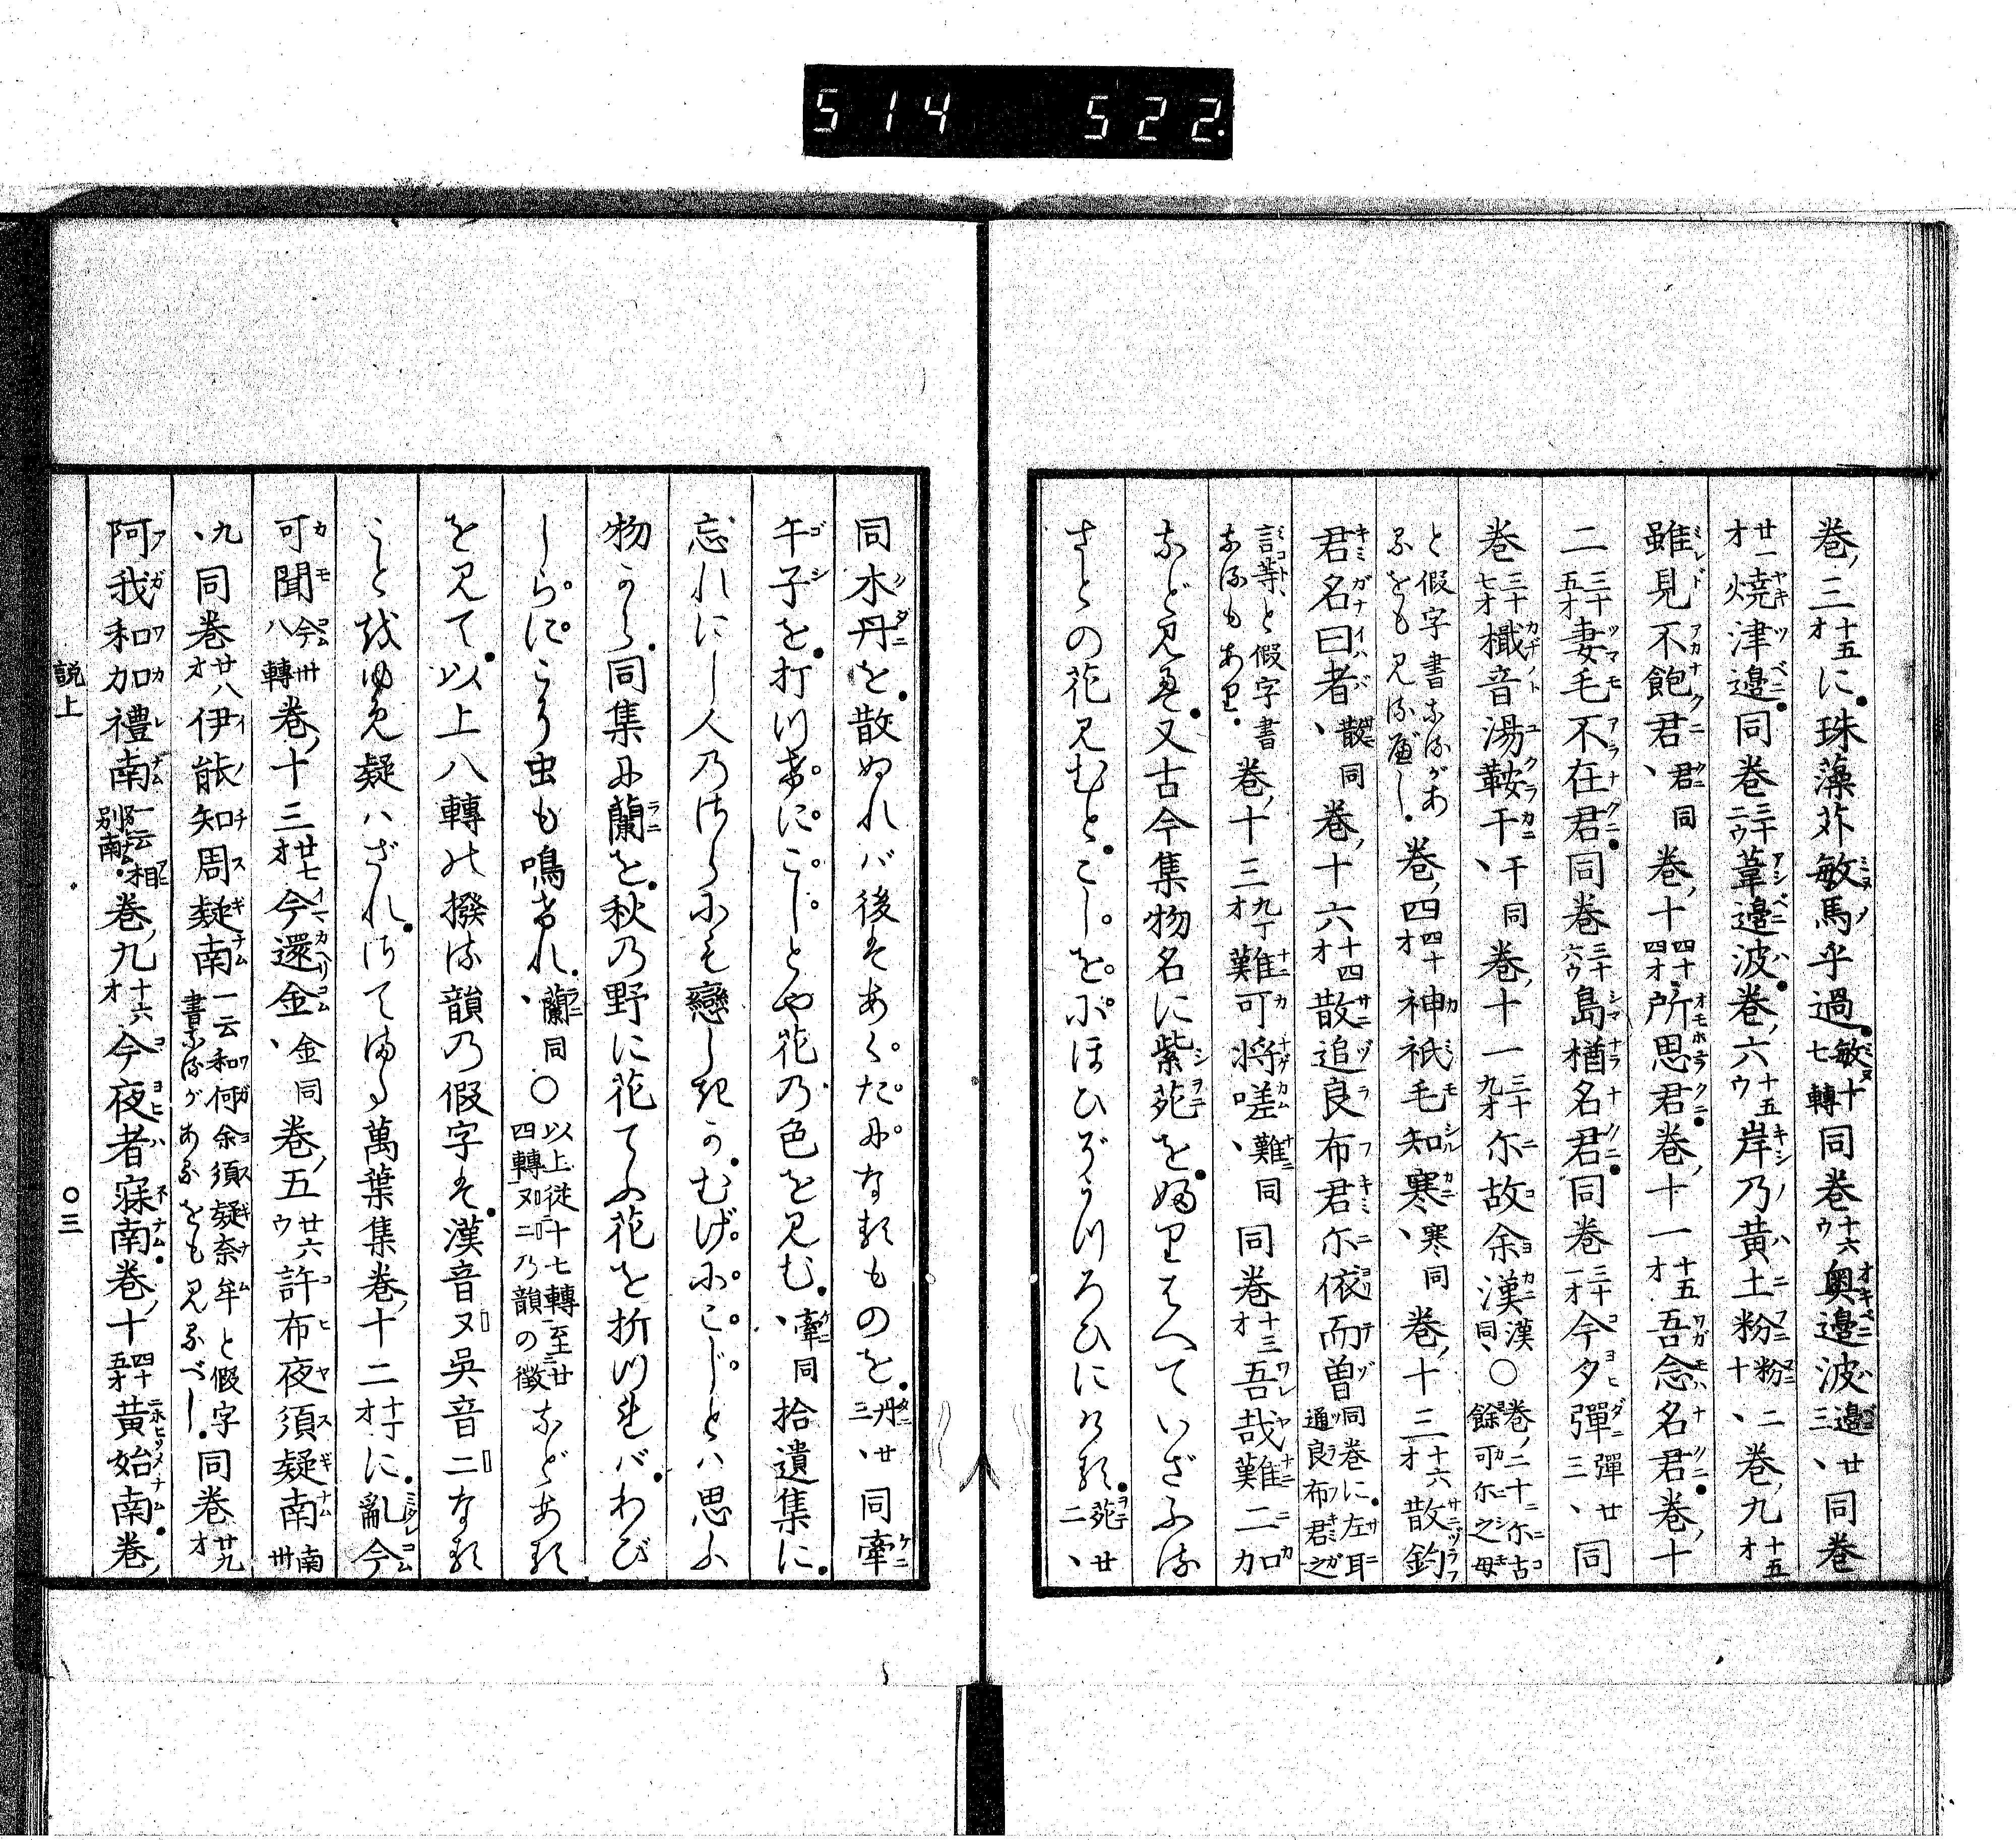 514 522.
巻三十五オに珠藻苅敏馬乎過敏十七轉同巻十六ウ奥邊波邊廿三、同巻
廿一オ焼津邊同巻三十二ウ葦邊波巻六十五ウ岸乃黄土粉粉二十、巻九十五オ
雖見不飽君、君同巻十四十四オ所思君巻十一十五オ吾念名君巻十
二三十五オ妻毛不在君同巻三十六ウ島楢名君同巻三十一オ今夕彈彈廿三、同
巻三十七オ檝音湯鞍干、干同巻十一三十九オ尓故余漢漢同、〇巻二十ニ尓古餘可尓之母
と假字書なるがあるをも見るべし。巻四四十オ神祇毛知寒、寒同巻十三十六オ散釣
君名曰者、散同巻十六十四オ散追良布君尓依而曽同巻に左耳通良布君之
言等、と假字書なるもあり。巻十三九丁オ難可将嗟、難同同巻十三オ吾哉難二加
など見え又古今集物名に紫苑をふりはへていざふる
さとの花見むとこしをにほひぞうつろひにける苑廿二、
同木丹を散ぬれバ後ハあくたになるものを丹廿三、同牽
午子を打つけにこしとや花の色を見む、牽同拾遺集に
忘れにし人のさらにも戀しきかむげにこじとハ思ふ
物から同集に蘭を秋の野に花てふ花を折つればわび
しらにこそ虫も鳴けれ、蘭同〇以上從十七轉至廿四轉ヌニ乃韻の徴などある
を見て以上八轉の撥る韻の假字ハ漢音ヌ呉音ニなる
こと越ゆめ疑ハざれさてまた萬葉集巻十二十丁オに亂今
可聞今卅八轉巻十三廿七オ今還金、金同巻五廿六ウ許布夜須疑南南卅
九、同巻廿八オ伊能知周疑南一云和何余須疑奈牟と假字書なるがあるをも見るべし同巻廿九オ
阿我和加禮南一云相別南巻九十六オ今夜者寐南巻十四十五オ黄始南巻
説上 〇三